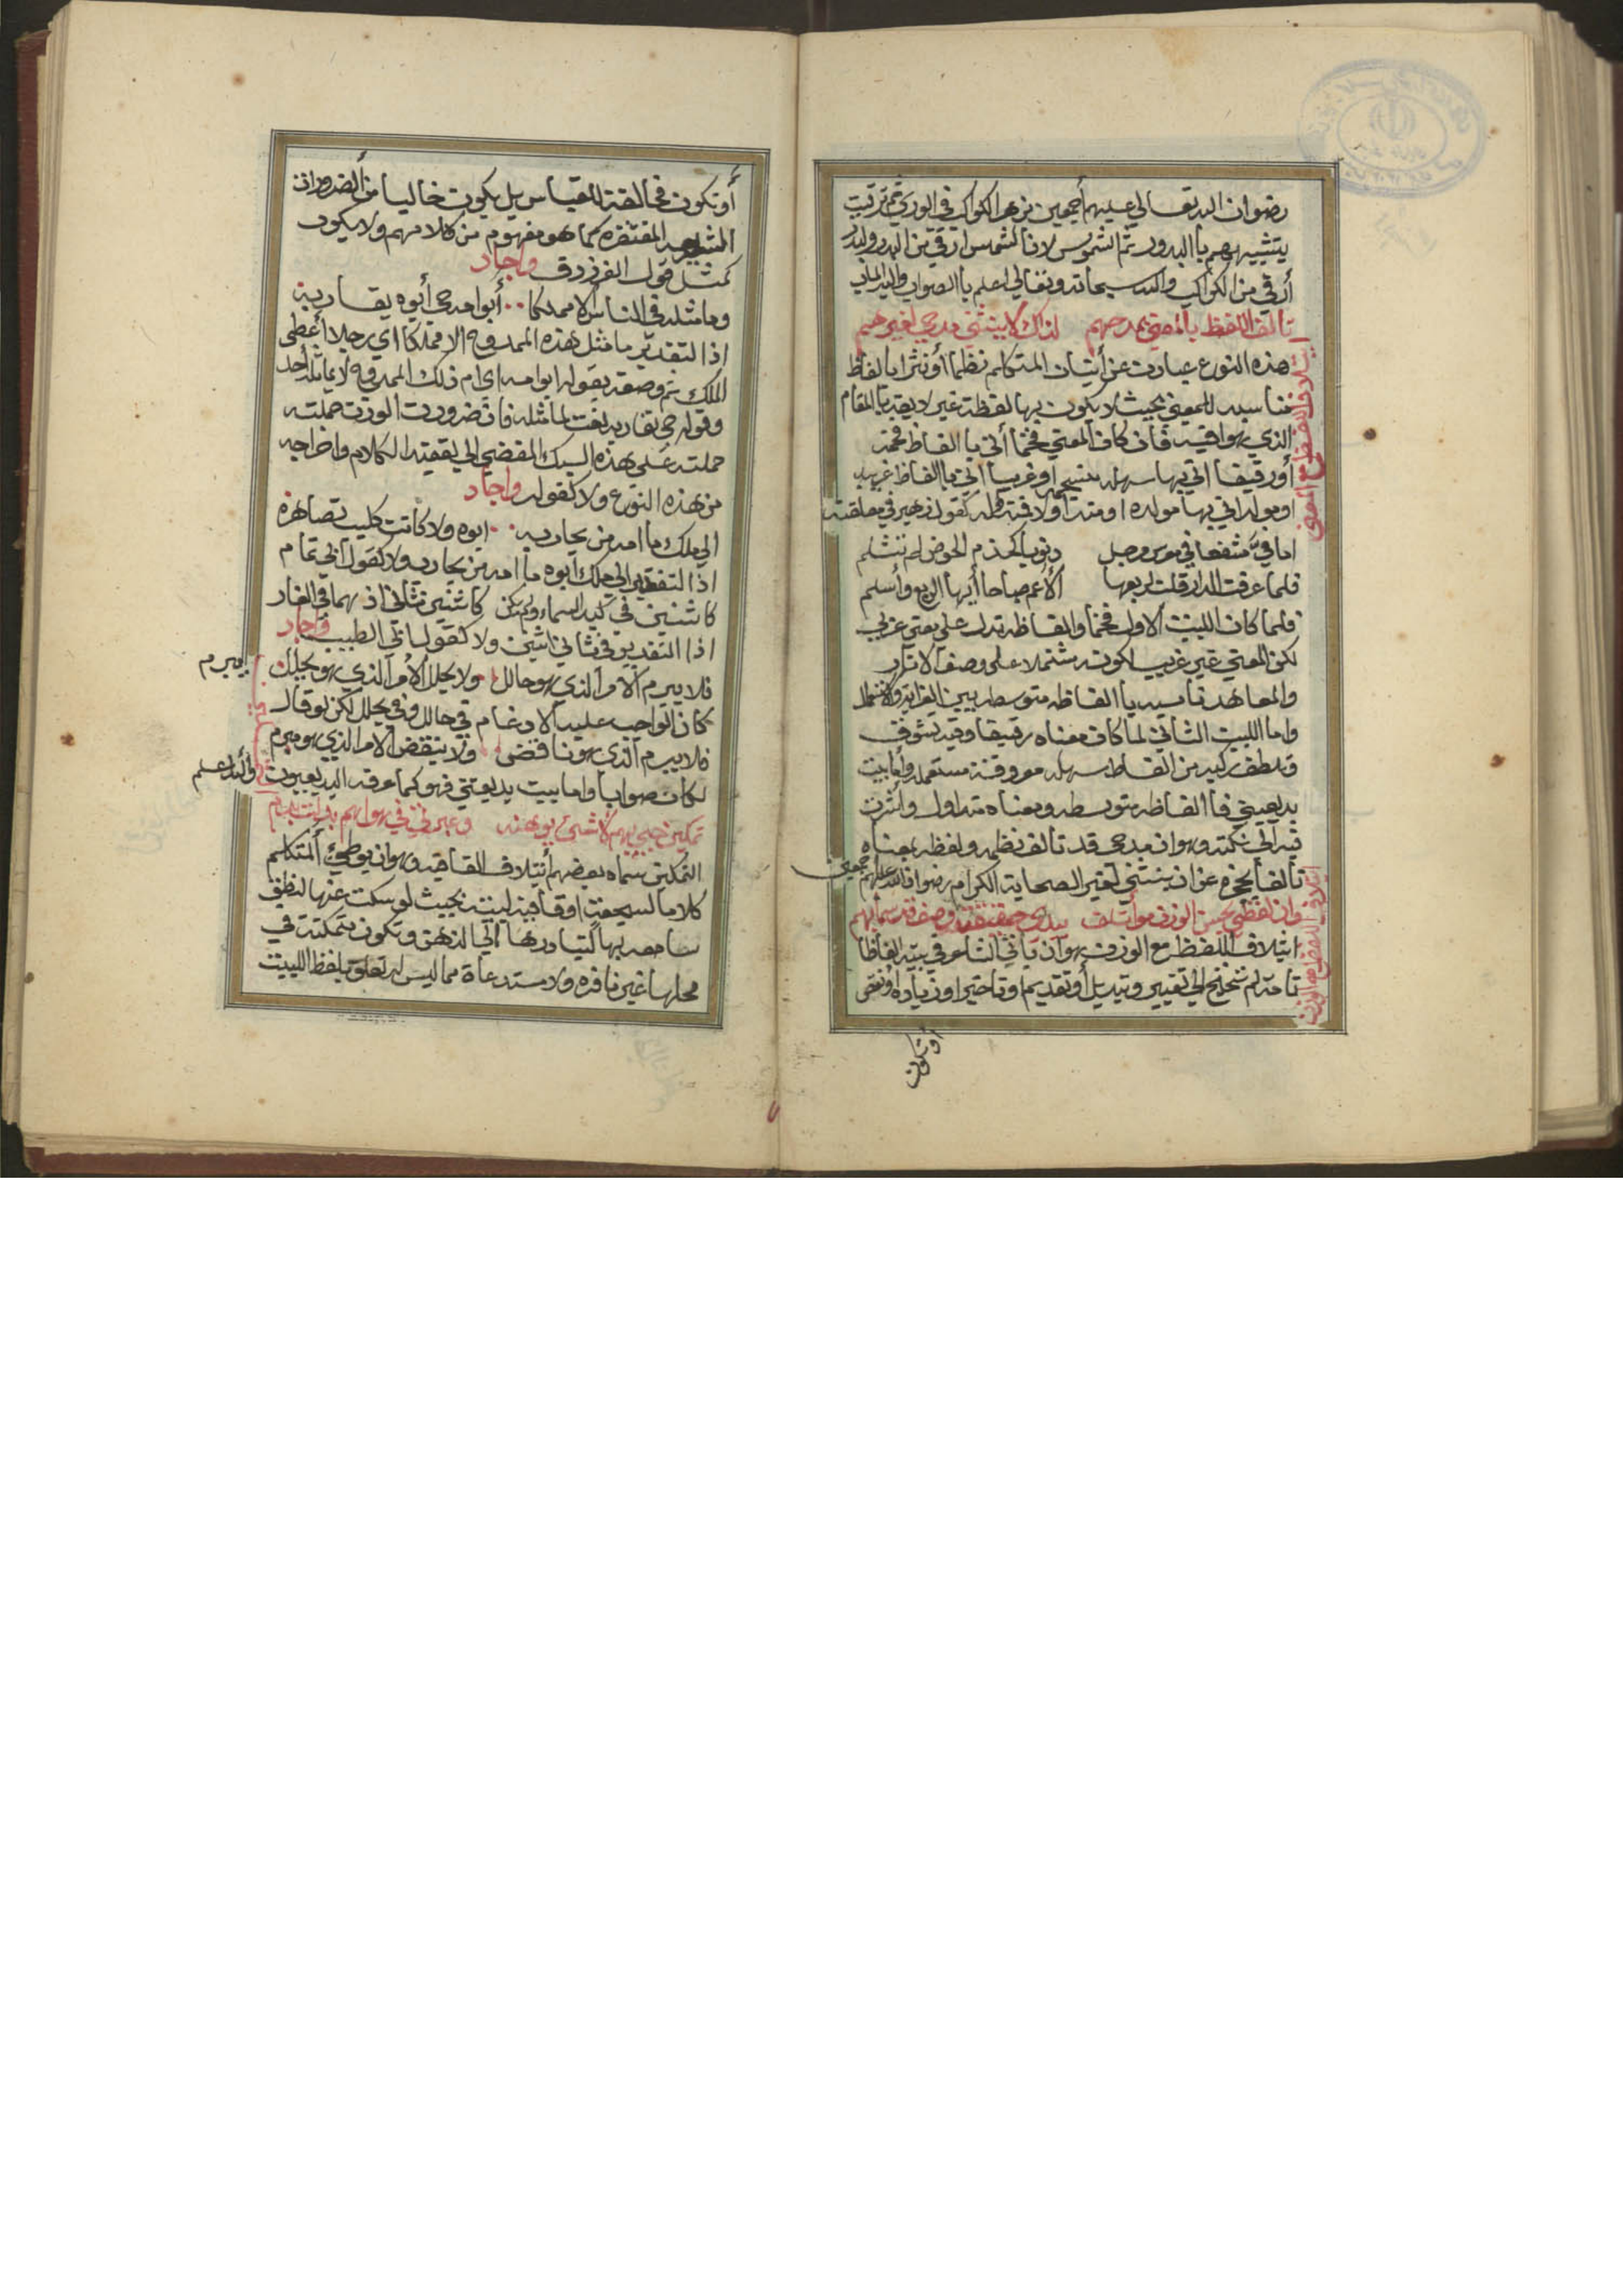 رضوان الله تعالى عليهم أجمعين من هو الكواكب في الوري ثم ترقيت
بتشبيههم باالبدور ثم الشموس لان الشمس ارقي من البدر والبدر
أرقي من الكواكب والله سبحانه وتعالي اعلم باالصواب واليه المآب
تالف اللفظ باالمعني بمدحهم لذاك لا ينثني مدحي لغيرهم
هذه النوع عبارت عن أتيان المتكلم نظما أو نثرا بالفاظ
مناسبه للمعني بحيث لا يكون بها لفظة غير لايقه باالمقام
الذي هو فيه فان كان المعني فخما أتي باالفاظ فخمه
أو رقيقا اتي بها سهله منسجمه او غريبا اتي باالفاظ غريبه
او مولدا اتي بها مولده او متداولا فمتداوله كقول زهير في معلقته
اثافي سفعا في معرس مرجل ونويا كجذم الحوض لم يتثلم
فلما عرفت الدار قلت لربعها ألا عم صباحا أيها الربع وأسلم
فلما كان البيت الاول فخما والفاظه تدل علي معني عربي
لكن المعني غير غريب لكونه مشتملا على وصف الاثار
والمعاهد ناسبه باالفاظه متوسطه بين الغرابه والاستعمال
واما البيت الثاني لما كان معناه رقيقا وفيه تشوق
وتلطف ركبه من الفاظ سهله معروفة مستعمله وأما بيت
بديعيتي فاالفاظه متوسطه ومعناه متداول وأشرت
فيه الي نكته وهو ان مدحي قد تالف نظمه ولفظه بمعناه
تالفا يخرجه عن ان ينثني لغير الصحابة الكرام رضوان الله عليهم اجمعين
وان لفظي بحسن الوزن مؤتلف يبدي حقيقة وصف قد سما بهم
ايتلاف اللفظ مع الوزن هو ان ياتي الشاعر في بيته الفاظا
تامة لم تحتج الي تغيير وتبديل أو تقديم او تاخير او زياده او نقص
ايتلاف اللفظ مع المعني
ايتلاف اللفظ مع الوزن
او تكون
أو تكون مخالفة للقياس بل يكون خاليا من الضرورات
الشعريه المفتقره كما هو مفهوم من كلامهم ولا يكون
كمثل قول الفرزدق واجاد
وما مثله في الناس الا مملكا أبو امه حي أبوه يقاربه
اذا التقدير ما مثل هذه الممدوح الا مملكا اي رجلا أعطي
الملك ثم وصفه بقوله ابو امه اي ام ذلك الممدوح لا يماثله أحد
وقوله حي يقاربه نعت لما مثله فان ضرورت الوزن حملته
حملته على هذه السبك المفضي الي تعقيد الكلام واخراجه
من هذه النوع ولا كقوله واجاد
الي ملك ما امه من محارب ابوه ولا كانت كليب تصاهره
اذا التقدير الي ملك ابوه ما امه من محارب ولا كقول ابي تمام
كاثنين في كبد السماء ولم يكن كاثنين ثاني اذ هما في الغار
اذا التقدير في ثاني اثنين ولا كقول ابي الطيب واجاد
فلا يبرم الامر الذي هو حالل ولا يحلل الأمر الذي هو يحلل
يبرم
كان الواجب عليه الادغام في حالل وفي يحلل لكن لو قال
فلا يبرم الذي هو ناقض ولا ينقض الامر الذي هو مبرم
لكان صوابا واما بيت بديعيتي فهو كما عرفه البديعيون والله اعلم
تمكين حبي بهم لا شئ يوهنه
التمكين سماه بعضهم أيتلاف القافيه وهو ان يوطئ المتكلم
كلاما لسجعته او قافية لبيته بحيث لو سكت عنها لنطق
سامعه بها لتبادرها الي الذهن وتكون متمكنة في
محلها غير نافره ولا مستدعاة مما ليس له تعلق بلفظ البيت